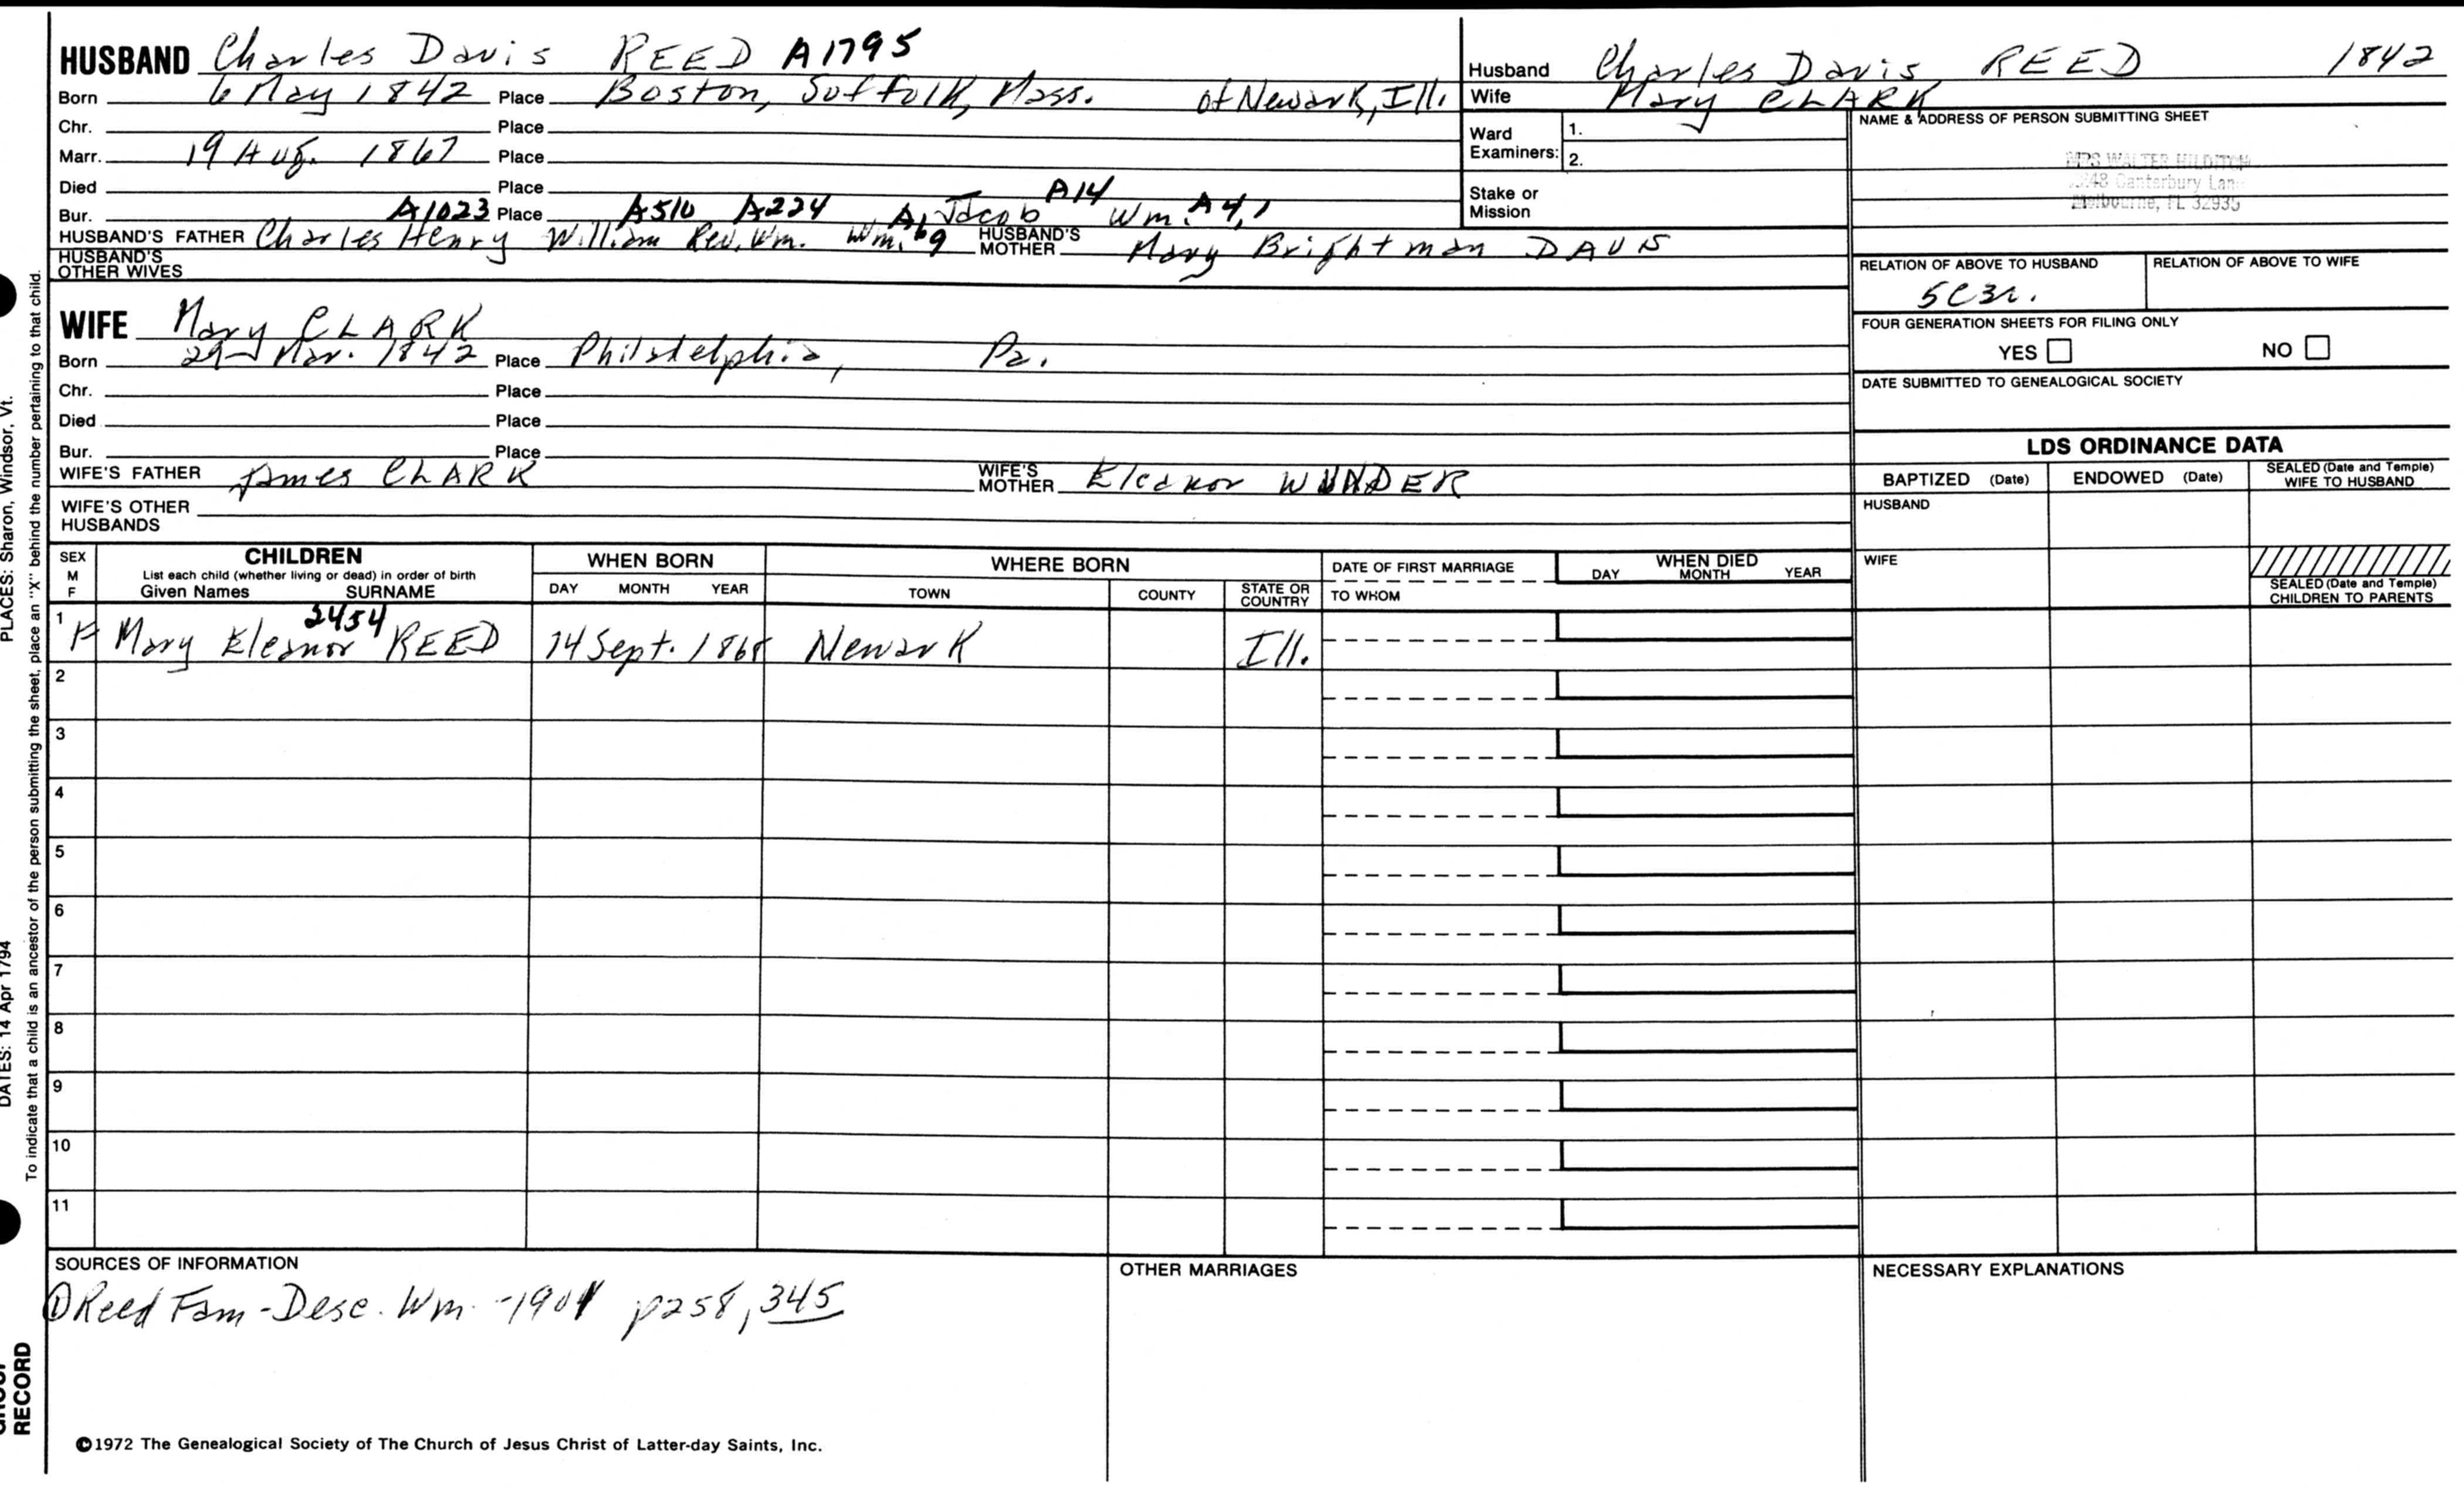 HUSBAND Charles Davis REED A1795
Born 6 May 1842 Place Boston, Suffolk, Mass. of Newark, Ill.
Chr. Place
Marr. 19 Aug. 1867 Place
Died Place
Bur. A1023 Place A510 A224 A14 A4,1
HUSBAND'S FATHER Charles Henry William Rev. Wm. Wm. 69 Jacob Wm. HUSBAND'S MOTHER Mary Brightman DAVIS
HUSBAND'S OTHER WIVES
WIFE Mary CLARK
Born 29 Mar. 1842 Place Philadelphia, Pa.
Chr. Place
Died Place
Bur. Place
WIFE'S FATHER James CLARK WIFE'S MOTHER Eleanor WUNDER
WIFE'S OTHER HUSBANDS
Husband Charles Davis REED 1842
Wife Mary CLARK
Ward Examiners: 1. 2.
Stake or Mission
NAME & ADDRESS OF PERSON SUBMITTING SHEET
MRS WALTER
Canterbury Lane
Melbourne, FL 32935
RELATION OF ABOVE TO HUSBAND RELATION OF ABOVE TO WIFE
5C3r.
FOUR GENERATION SHEETS FOR FILING ONLY
YES NO
DATE SUBMITTED TO GENEALOGICAL SOCIETY
LDS ORDINANCE DATA
BAPTIZED (Date) ENDOWED (Date) SEALED (Date and Temple) WIFE TO HUSBAND
HUSBAND
WIFE
SEALED (Date and Temple) CHILDREN TO PARENTS
SEX M F
CHILDREN
List each child (whether living or dead) in order of birth
Given Names SURNAME
WHEN BORN
DAY MONTH YEAR
WHERE BORN
TOWN COUNTY STATE OR COUNTRY
DATE OF FIRST MARRIAGE
TO WHOM
WHEN DIED
DAY MONTH YEAR
2454
1 F Mary Eleanor REED 14 Sept. 1868 Newark Ill.
2
3
4
5
6
7
8
9
10
11
SOURCES OF INFORMATION
① Reed Fam - Desc. Wm. - 1901 p258, 345
OTHER MARRIAGES
NECESSARY EXPLANATIONS
©1972 The Genealogical Society of The Church of Jesus Christ of Latter-day Saints, Inc.
PLACES: Sharon, Windsor, Vt.
DATES: 14 Apr 1794
To indicate that a child is an ancestor of the person submitting the sheet, place an "X" behind the number pertaining to that child.
RECORD